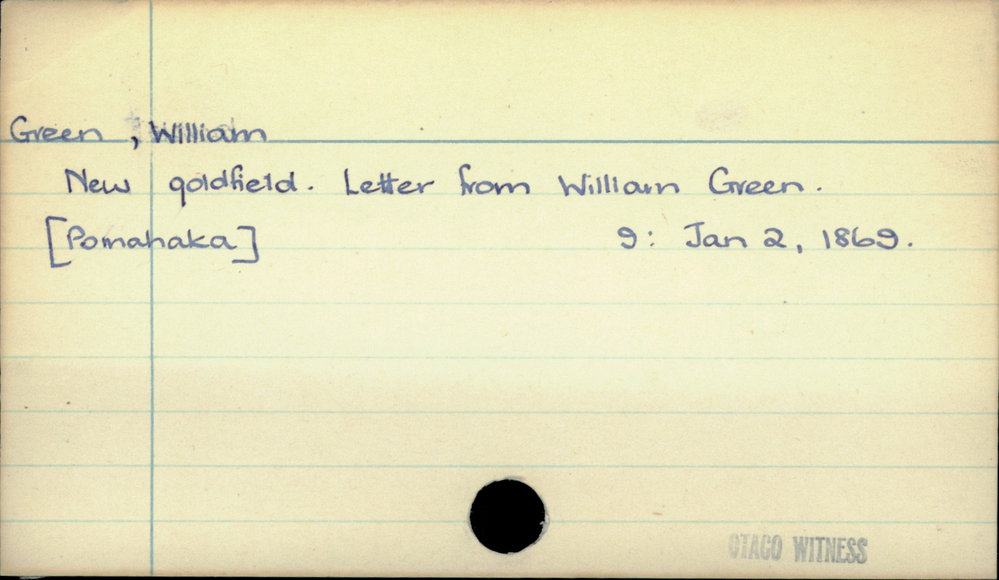 Green, William
New goldfield. Letter from William Green.
[Pomahaka] 9: Jan 2, 1869.
OTAGO WITNESS